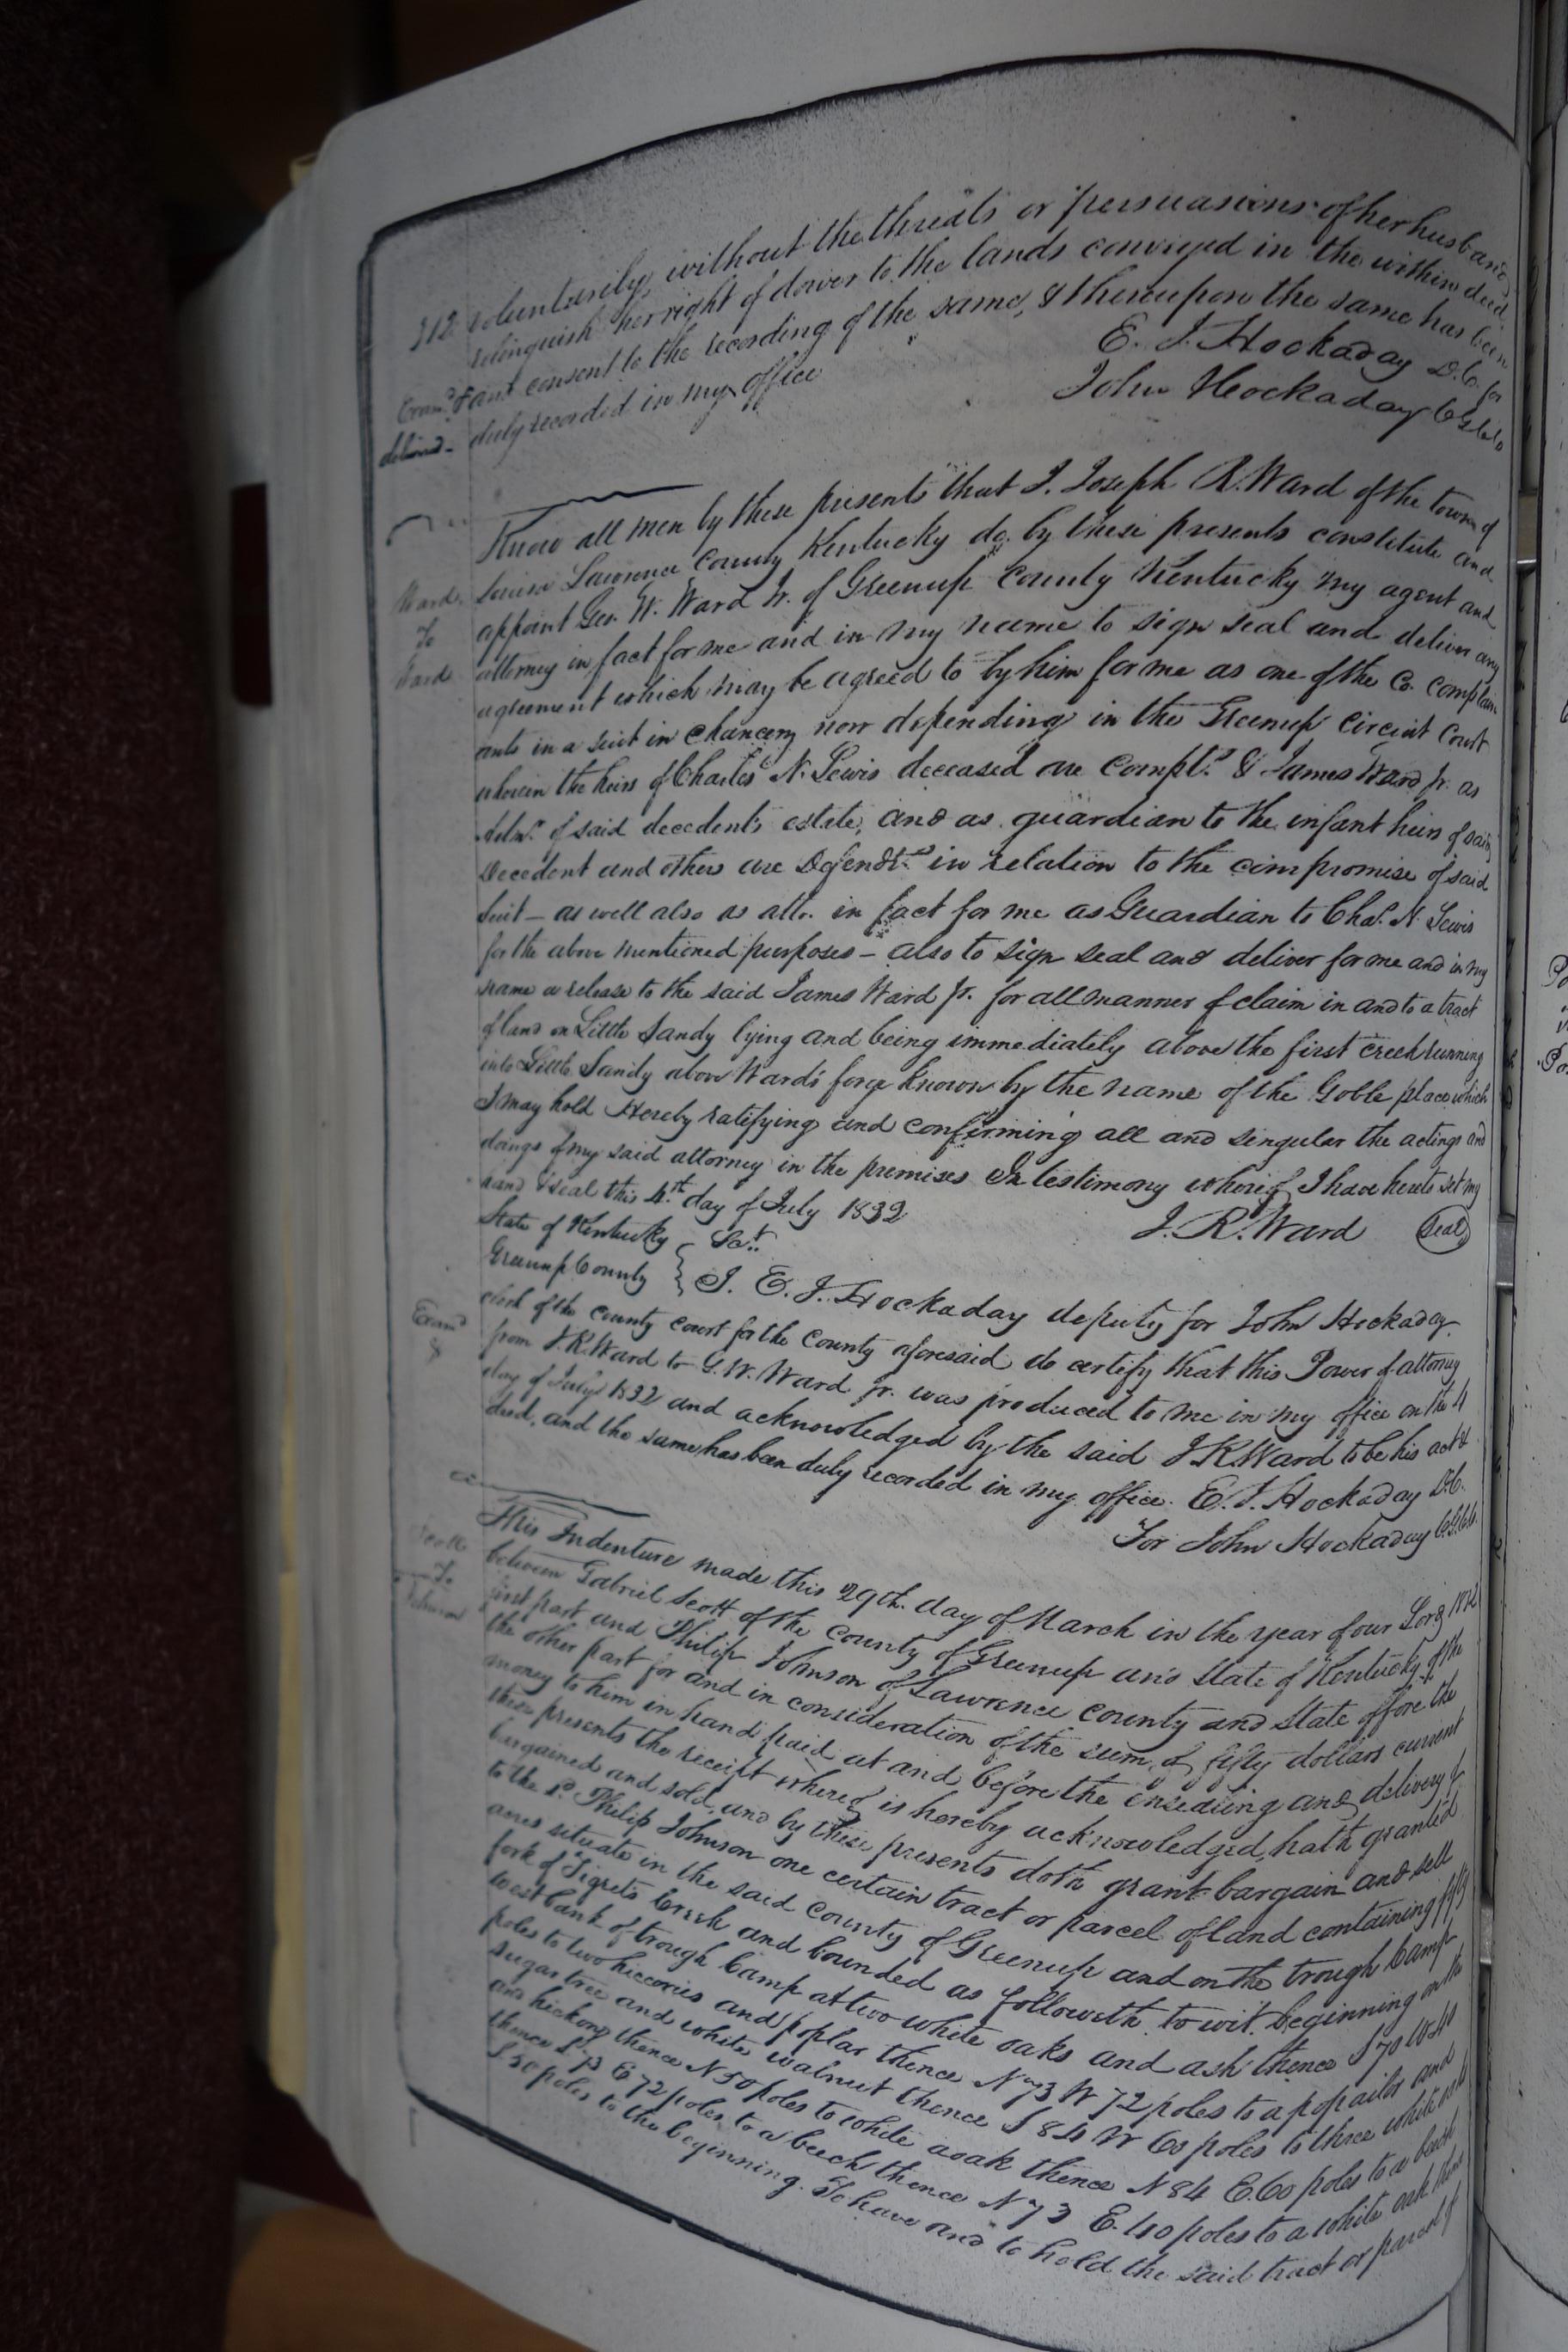 312 voluntarily, without the threats or persuasions of her husband
relinquish her right of dower to the lands conveyed in the within deed
Exam.d & and consent to the recording of the same, & thereupon the same has been
delivered duly recorded in my office E. J. Hockaday D.C. for
John Hockaday
Know all men by these presents that I. Joseph R. Ward of the town of
Ward Louisa Lawrence County Kentucky do by these presents constitute and
To appoint Geo. W. Ward Jr. of Greenup County Kentucky my agent and
Ward attorney in fact for me and in my name to sign seal and deliver any
agreement which may be agreed to by him for me as one of the Co. complain
ants in a suit in chancery now depending in the Greenup Circuit Court
wherein the heirs of Charles N. Lewis deceased are Complts. & James Ward Jr. as
Adm.r of said decedents estate, and as guardian to the infant heirs of said
Decedent and others are Defendts. in relation to the compromise of said
Suit – as well also as atto. in fact for me as Guardian to Chas. N. Lewis
for the above mentioned purposes – also to sign seal and deliver for me and in my
name a release to the said James Ward Jr. for all manner of claim in and to a tract
of land on Little Sandy lying and being immediately above the first creek running
into Little Sandy above Ward's forge known by the name of the Goble place which
I may hold Hereby ratifying and confirming all and singular the actings and
doings of my said attorney in the premises In testimony whereof I have hereto set my
hand & seal this 4th day of July 1832 J. R. Ward Seal
State of Kentucky Sct.
Greenup County I. E. J. Hockaday deputy for John Hockaday
clerk of the county court for the county aforesaid do certify that this Power of attorney
Exam.d & from J. R. Ward to G. W. Ward Jr. was produced to me in my office on the 4
day of July 1832 and acknowledged by the said J R Ward to be his act &
deed, and the same has been duly recorded in my office. E. J. Hockaday D.C.
For John Hockaday
This Indenture made this 29th. day of March in the year of our Lord 1832
Scott between Gabriel Scott of the County of Greenup and State of Kentucky of the
To first part and Philip Johnson of Lawrence County and State offore the
Johnson the other part for and in consideration of the sum of fifty dollars current
money to him in hand paid at and before the ensealing and delivery of
these presents the receipt whereof is hereby acknowledged, hath granted
bargained and sold, and by these presents doth grant bargain and sell
to the sd. Philip Johnson one certain tract or parcel of land containing fifty
acres situate in the said County of Greenup and on the trough Camp
fork of Tigrets Creek and bounded as followeth to wit. beginning on the
West bank of trough Camp at two white oaks and ash thence S 70 W
poles to two hiccories and poplar thence N 73 W 72 poles to a popailor and
sugar tree and white walnut thence S 84 W 60 poles to three white
and hickory thence N 50 poles to white aoak thence N 84 E. 60 poles to a beech
thence S 73 E 72 poles to a beech thence N 73 E. 40 poles to a white oak thence
S. 50 poles to the beginning. To have and to hold the said tract or parcel of